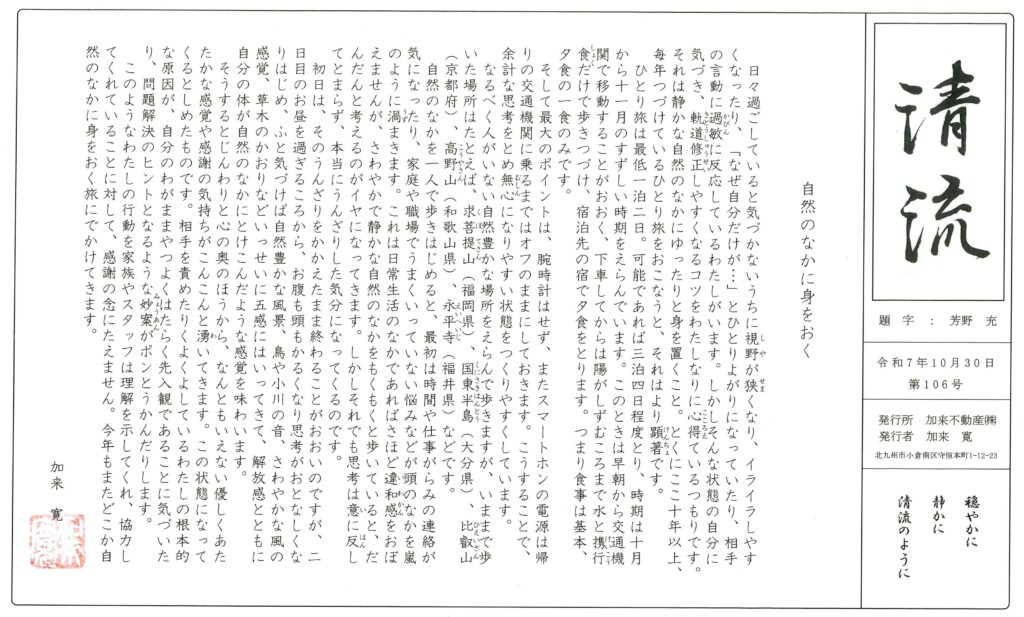 清流
題字：芳野 充
令和7年10月30日
第106号
発行所 加来不動産㈱
発行者 加来 寛
北九州市小倉南区守恒本町1-12-23
穏やかに
静かに
清流のように
自然のなかに身をおく
日々過ごしていると気づかないうちに視野が狭くなり、イライラしやす
くなったり、「なぜ自分だけが…」とひとりよがりになっていたり、相手
の言動に過敏に反応しているわたしがいます。しかしそんな状態の自分に
気づき、軌道修正しやすくなるコツをわたしなりに心得ているつもりです。
それは静かな自然のなかにゆったりと身を置くこと。とくにここ十年以上、
毎年つづけているひとり旅をおこなうと、それはより顕著です。
ひとり旅は最低一泊二日。可能であれば三泊四日程度とり、時期は十月
から十一月のすずしい時期をえらんでいます。このときは早朝から交通機
関で移動することがおおく、下車してからは陽がしずむころまで水と携行
食だけで歩きつづけ、宿泊先の宿で夕食をとります。つまり食事は基本、
夕食の一食のみです。
そして最大のポイントは、腕時計はせず、またスマートホンの電源は帰
りの交通機関に乗るまではオフのままにしておきます。こうすることで、
余計な思考をとめ無心になりやすい状態をつくりやすくしています。
なるべく人がいない自然豊かな場所をえらんで歩きますが、いままで歩
いた場所はたとえば、求菩提山（福岡県）、国東半島（大分県）、比叡山
（京都府）、高野山（和歌山県）、永平寺（福井県）などです。
自然のなかを一人で歩きはじめると、最初は時間や仕事がらみの連絡が
気になったり、家庭や職場でうまくいっていない悩みなどが頭のなかを嵐
のように渦まきます。これは日常生活のなかであればさほど違和感をおぼ
えませんが、さわやかで静かな自然のなかをもくもくと歩いていると、だ
んだんと考えるのがイヤになってきます。しかしそれでも思考は意に反し
てとまらず、本当にうんざりした気分になってくるのです。
初日は、そのうんざりをかかえたまま終わることがおおいのですが、二
日目のお昼を過ぎるころから、お腹も頭もかるくなり思考がおとなしくな
りはじめ、ふと気づけば自然豊かな風景、鳥や小川の音、さわやかな風の
感覚、草木のかおりなどいっせいに五感にはいってきて、解放感とともに
自分の体が自然のなかにとけこんだような感覚を味わいます。
そうするとじんわりと心の奥のほうから、なんともいえない優しくあた
たかな感覚や感謝の気持ちがこんこんと湧いてきます。この状態になって
くるとしめたものです。相手を責めたりくよくよしているわたしの根本的
な原因が、自分のわがままやつよくはたらく先入観であることに気づいた
り、問題解決のヒントとなるような妙案がポンとうかんだりします。
このようなわたしの行動を家族やスタッフは理解を示してくれ、協力し
てくれていることに対して、感謝の念にたえません。今年もまたどこか自
然のなかに身をおく旅にでかけてきます。
加来 寛